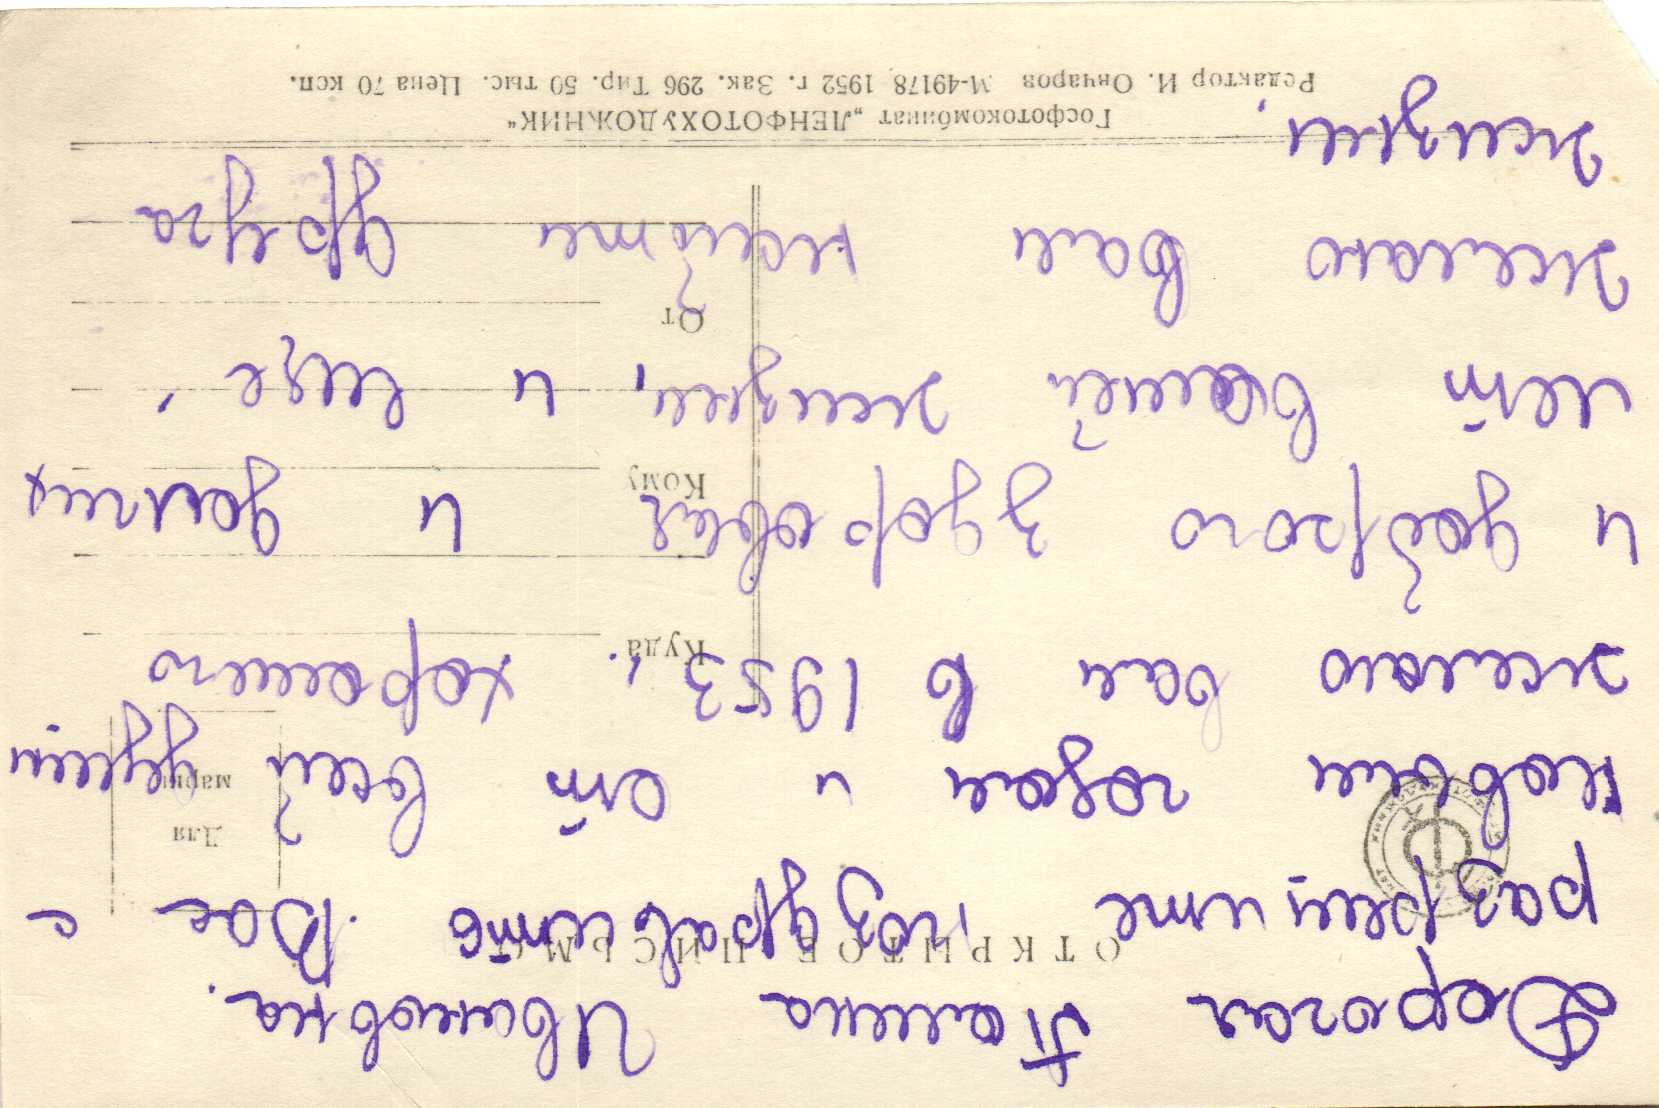 Дорогая Ивановна.
ОТКРЫТОЕ ПИСЬМО
разрешите поздравить Вас с
Для
марки
Новым годом и от всей души
Куда
желаю вам в 1953 г. хорошего
и доброго здоровья и долгих
Кому
лет вашей жизни, и еще,
От
желаю вам найти друга
жизни.
Госфотокомбинат „ЛЕНФОТОХУДОЖНИК“
Редактор И. Овчаров М-49178 1952 г. Зак. 296 Тир. 50 тыс. Цена 70 коп.